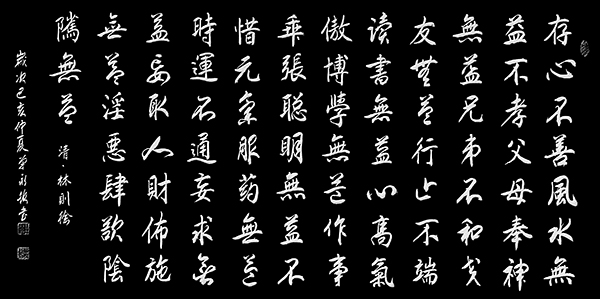 存心不善風水無
益不孝父母奉神
無益兄弟不和交
友無益行止不端
读書無益心高氣
傲博學無益作事
乖張聪明無益不
惜元氣服药無益
時運不通妄求無
益妄取人財佈施
無益淫惡肆欲陰
隲無益 清·林則徐
歲次己亥仲夏